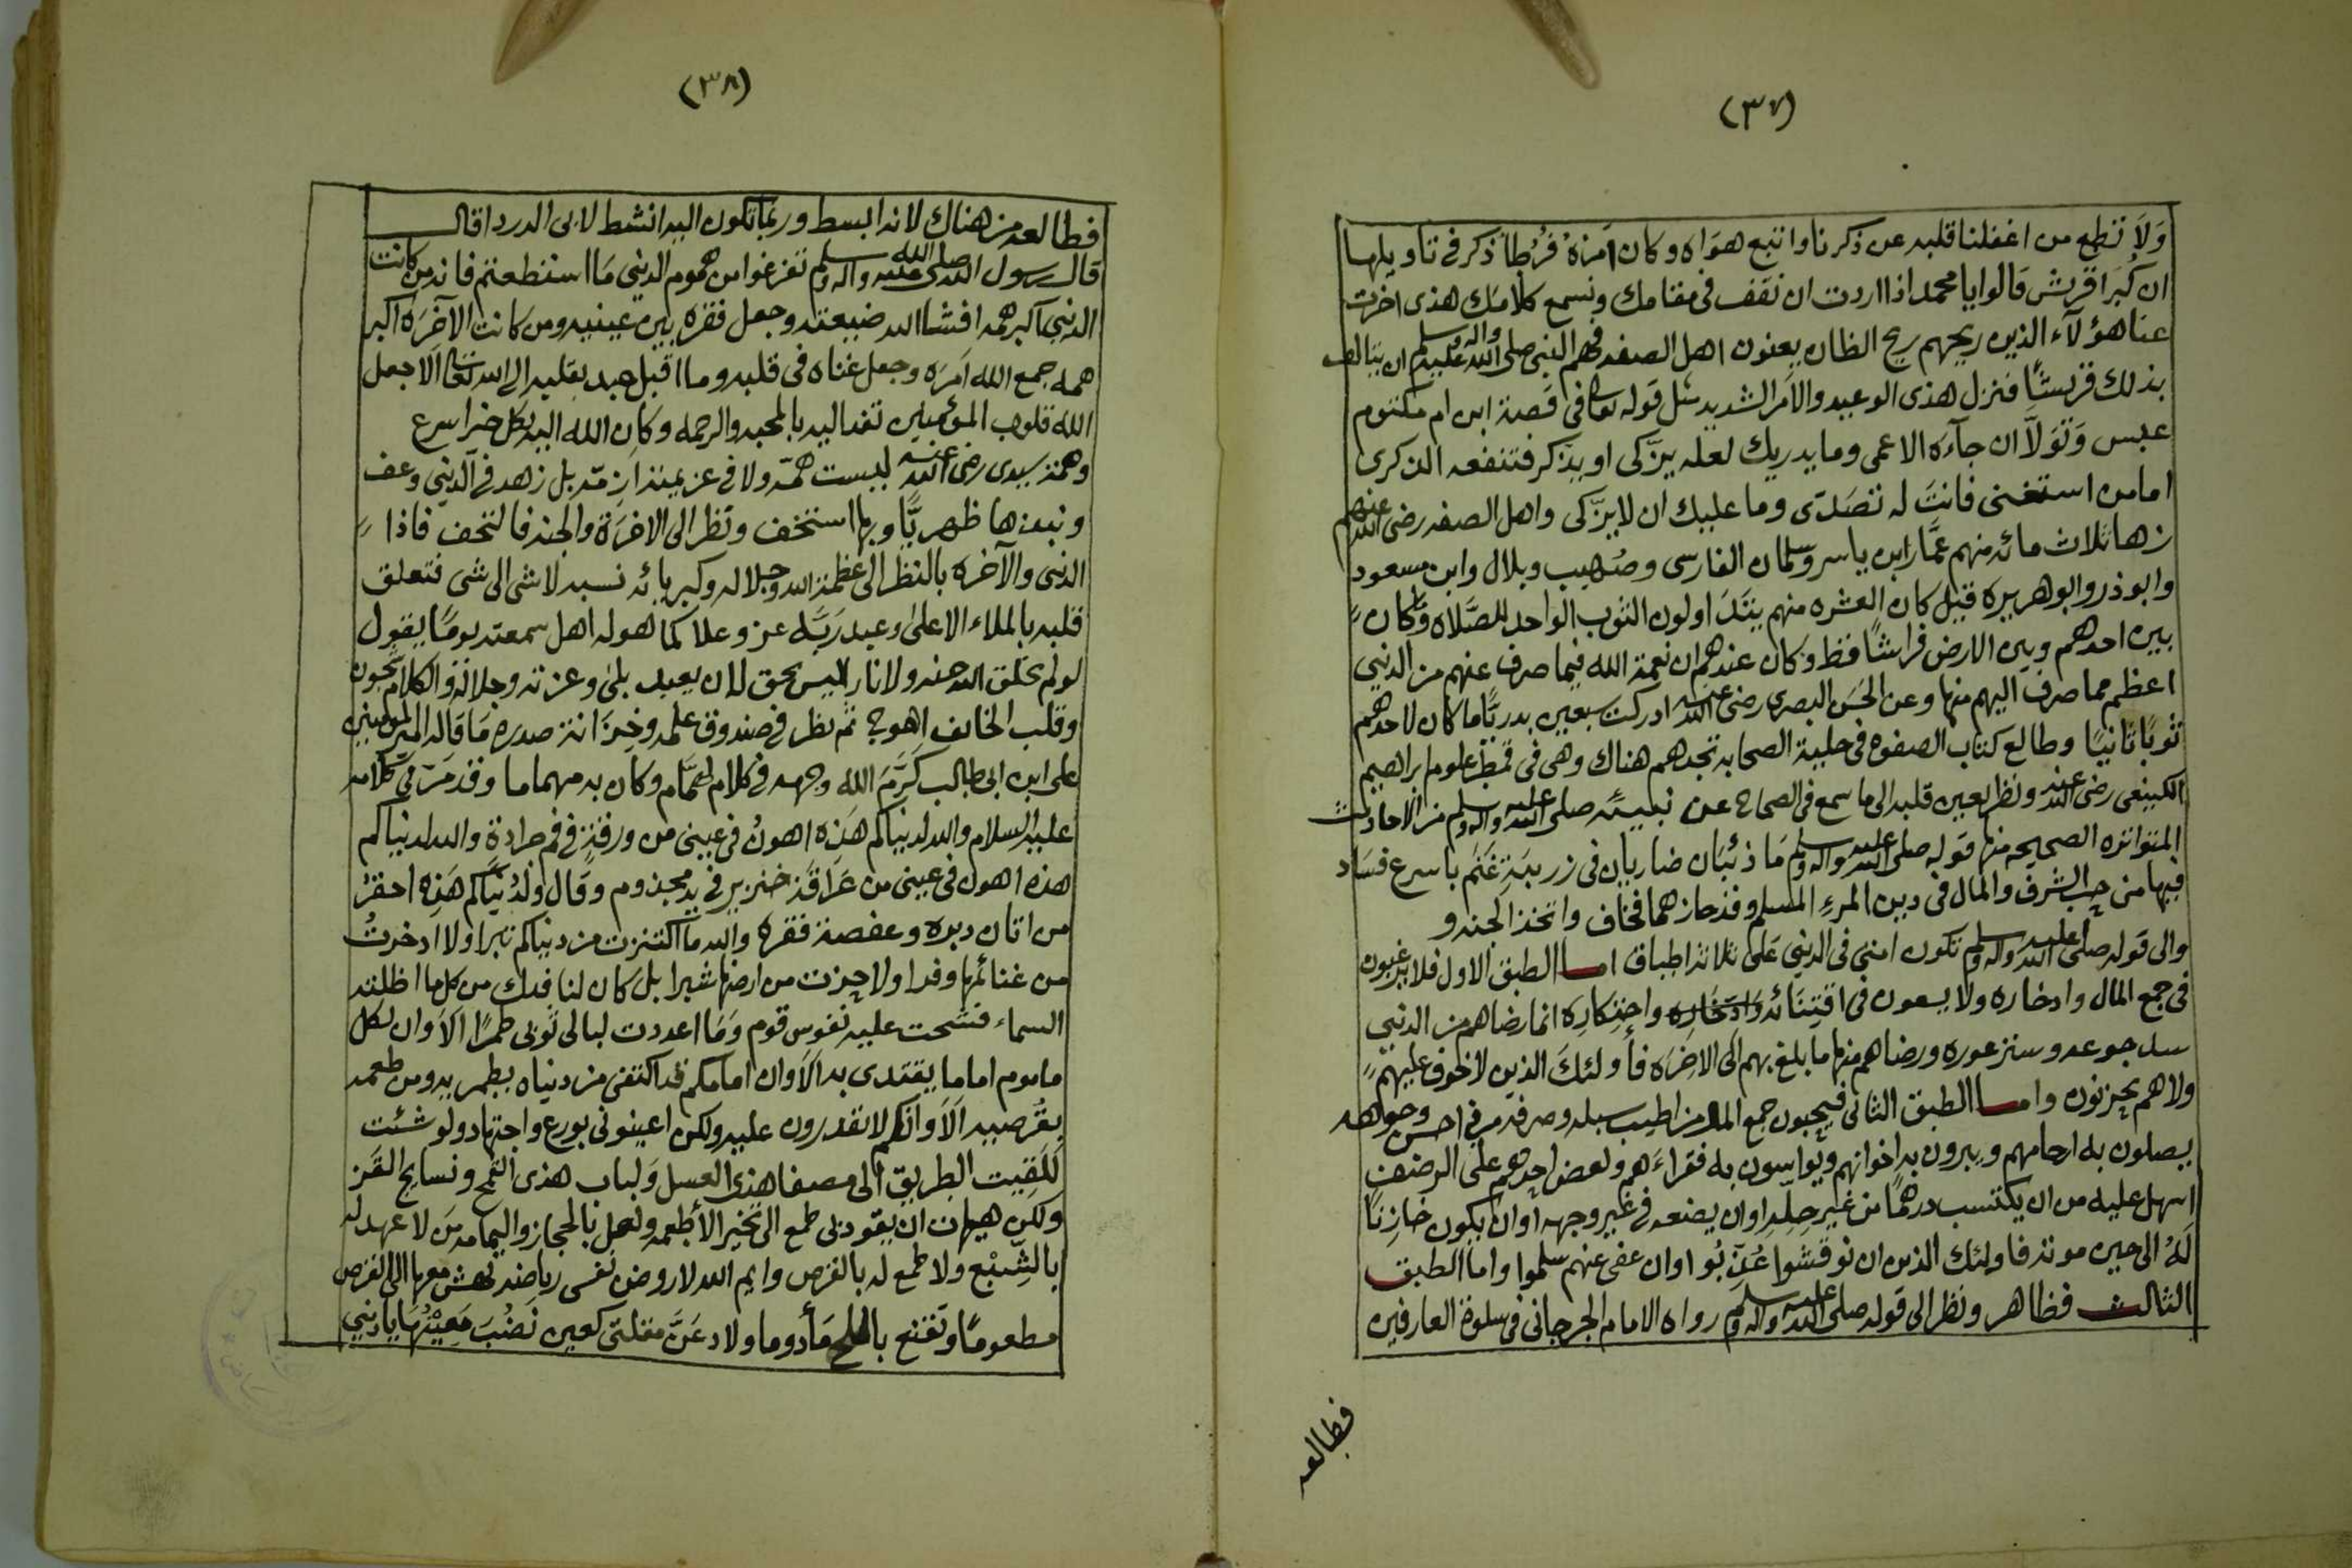 (٣٧)
وَلاَ تطع من اغفلنا قلبه عن ذكرنا واتبع هواه وكان اَمْرُهُ فُرُطاً ذكر في تأويلها
ان كُبَرَا قريش قالوا يا محمد اذا اردت ان نقف في مقامك ونسمع كلامك هذى اخرت
عنا هؤلآء الذين ريحهم ريح الظان يعنون اهل الصفه فهم النبى صلى الله عليه واله وسلم ان يتالف
بذلك قريشًا فنزل هذى الوعيد والاَمر الشديد مثل قوله تعالى في قصة ابن ام مكتوم
عبس وَتَوَلاَّ ان جآءه الاعمى وما يدريك لعله يزّكى او يذّكر فتنفعه الذكرى
امامن استغنى فانتَ له تصَدّى وما عليك ان لا يزّكى واهل الصفه رضى الله عنهم
زها ثلاث مائه منهم عمَّار ابن ياسر وسلمان الفارسى وصُهيب وبلال وابن مسعود
وابوذر وابو هريره قيل كان العشره منهم يتَدَاولون الثوب الواحد للصَّلاه وَكان
بين احدهم وبين الارض فراشًا قط وكان عندهم ان نعمة الله فيما صرف عنهم من الدني
اعظم مما صرف اليهم منها وعن الحَسَن البصرى رضى الله عنه ادركت سبعين بدريًّا ما كان لاحدهم
ثوبًا ثانيًا وطالع كتاب الصفوه في حلية الصحابه تجدهم هناك وهى في قمطر علوم ابراهيم
الكينعى رضى الله عنه ونظر بعين قلبه الى ما سمع في الصحاح عن نبيئه صلى الله عليه واله وسلم من الاحاديث
المتواتره الصحيحه منها قوله صلى الله عليه واله وسلم مَا ذئبَان ضاريان في زريبَةِ غَنَم باسرع فسَاد
فيها من حب الشرف والمال في دين المرءِ المسلم وقد حازهما فخاف واتخذ الجنه و
والى قوله صلى الله عليه واله وسلم تكون امتى في الدنيى عَلى ثلاثة اطباق امــا الطبق الاول فلا يرغبون
في جمع المال وادخاره ولا يسعون في اقتِنَائه وادّخاره واحتِكَارِه انما رضاهم من الدنيى
سد جوعه وستر عوره ورضاهم منها ما بلغ بهم الى الاخِرَه فأولئكَ الذين لا خوف عليهم
ولا هم يحزنون وامــا الطبق الثانى فيحبون جمع المال من اطيب سبله وصرفه في احسن وجوهه
يصلون به ارحامهم ويبرون به اخوانهم ويواسون به فقراءَهم ولعض احدهم على الرضف
اسهل عليه من ان يكتسب درهمًا من غيرِ حِلّهِ او ان يضعه في غير وجهه او ان يكون خازِنًا
لَهُ الى حين موته فاولئك الذين ان نوقشوا عُذّبُوا وان عفى عنهم سلموا واما الطبق
الثالث فظاهر ونظر الى قوله صلى الله عليه واله وسلم رواه الامام الجرجانى في سلوة العارفين
فطالعه
(٣٨)
فطالعه من هناك لانه ابسط وربمَا تكون اليه انشط لابى الدردا قال
قال رسول الله صلى الله عليه واله وسلم تفرغوا من هموم الدنيى مَا استطعتم فانه من كانت
الدنيى اكبر همه افشا الله ضيعته وجعل فقره بين عينيه ومن كانت الآخرَه اكبر
همه جمع الله اَمرَه وجعل غناه في قلبه وما اقبل عبد بقلبه الى الله تعالى الا جعل
الله قلوب المؤمنين تفد اليه بالمحبه والرحمه وكان الله اليه بكل خير اسرع
وهمة سيدى رضى الله عنه ليست همّه ولا في عزيمته ازمّه بل زهد في الدنيى وعف
ونبذها ظهريًّا وبها استخف ونظر الى الاخرَة والجنه فالتحف فاذا
الدنى والآخره بالنظر الى عظمة الله وجلاله وكبريائه نسبه لا شى الى شى فتعلق
قلبه بالملاء الاعلىٰ وعبد رَبَّه عز وعلا كما هو له اهل سمعته يومًا يقول
لو لم يخلق الله جنه ولا نار اليس بحق لان يعبد بلىٰ وعزته وجلاله والكلام شجون
وقلب الخايف اهوج ثم نظر في صندوق علمه وخِزَانة صدره مَا قاله امير المؤمنين
على ابن ابى طالب كَرَّمَ الله وجهه في كلام لهمَّام وكان به مهماما وقد مَرّ في كلامه
عليه السلام والله لدنياكم هَذه اهونُ في عينى من ورقةٍ في فم جرادة والله لدنياكم
هذه اهون في عينى من عَرَاقَة خنزير في يد مجذوم وقال ولدُنيَاكم هَذِه احقرُ
من اتان دبره وعفصة مقره والله ما اكتنزت من دنياكم تبرا ولا ادخرتُ
من غنائمها وفرا ولا حزت من ارضها شبرا بل كان لنا فدك من كل ما اظلته
السماء فشحت عليه نفوس قوم وَمَا اعددت لبالى ثوبى طمرًا اَلاَ وان لكل
ماموم اماما يقتدى به الاَ وان امامكم قد اكتفى من دنياه بطمريه ومن طعمه
بقُرصيه اَلاَ وانكم لا تقدرون عليه ولكن اعينونى بورع واجتهاد ولو شئت
لَلَقِيت الطريق الى مصفا هذى العسل وَلباب هذى القمح ونسايج القَز
ولكن هيهات ان يقودنى طمع الى تخير الأطعمه ولعل بالحجاز واليمامه مَن لا عهد له
بالشِّبْع ولا طمع له بالقرص وايم الله لاروضن نفسى رياضه تهش معها الى القرص
مطعومًا وتقنع بالملح مَأدوما ولادعَنَّ مقلتى كعين نَضُبَ مَعِيْنُهَا يا دنيى